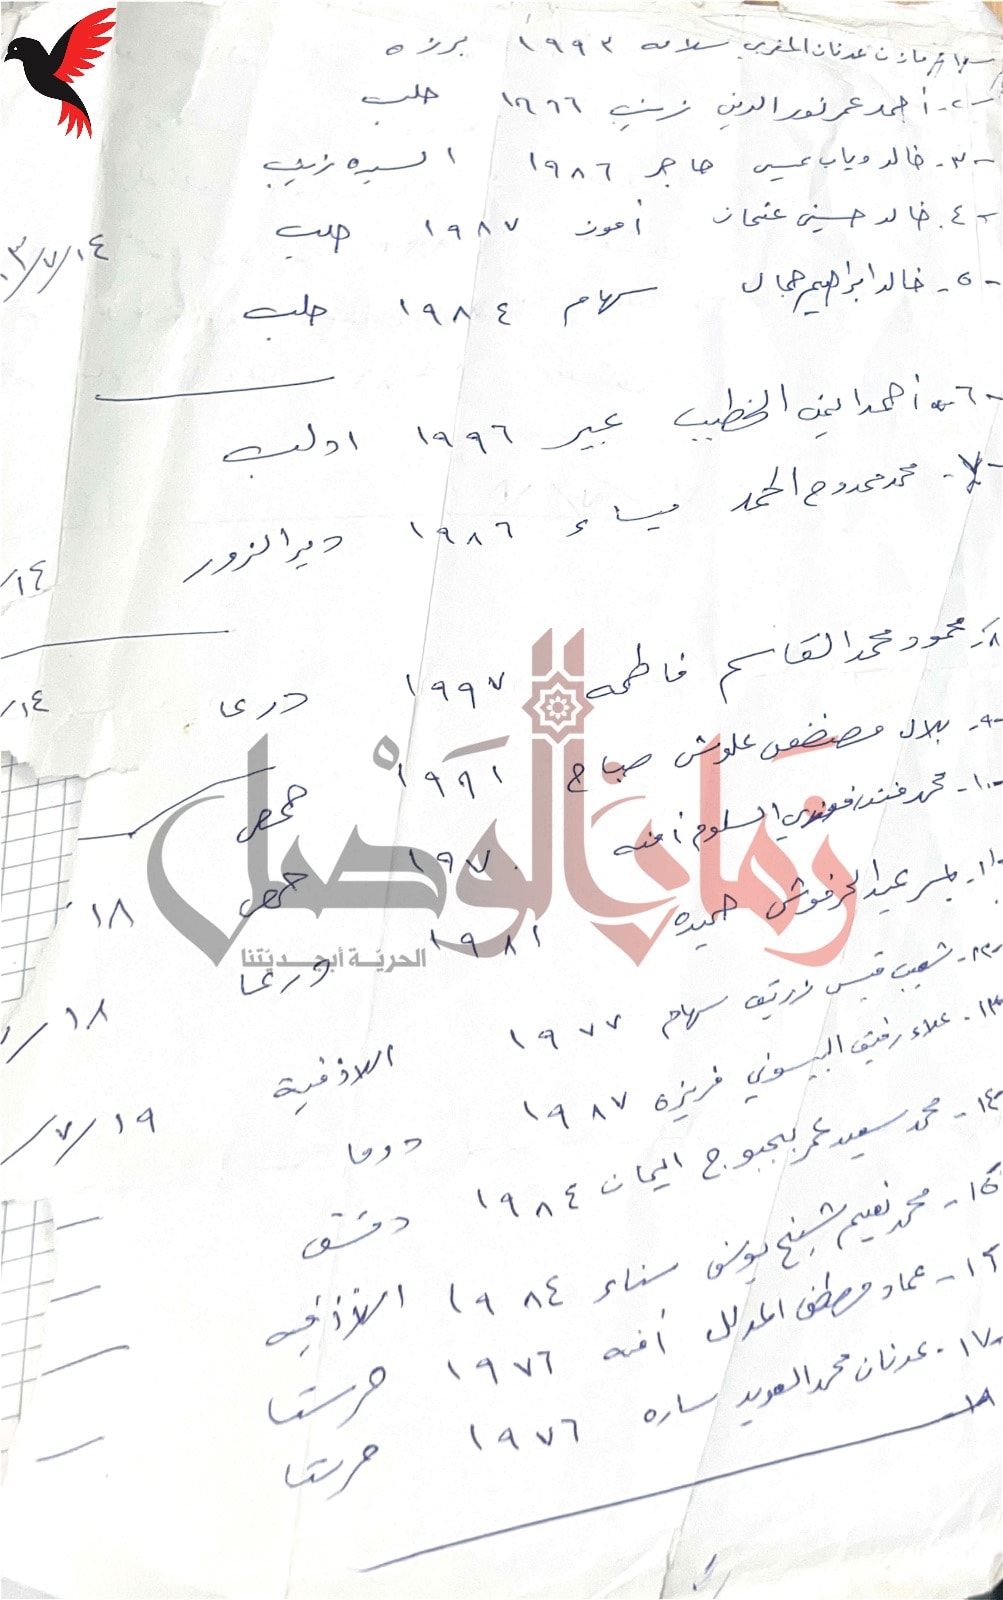 مازن عدنان المغربي سلامه ١٩٩٢ برزه
٢- أحمد عمر نور الدين زينب ١٩٦٦ حلب
٣- خالد دياب عيسى هاجر ١٩٨٦ السيده زينب
٤- خالد حسني عثمان أمون ١٩٨٧ حلب
٧/١٤
٥- خالد ابراهيم جمال سهام ١٩٨٤ حلب
٦- أحمد ايمن الخطيب عبير ١٩٩٦ ادلب
٧- محمد ممدوح الحمد ميساء ١٩٨٦ دير الزور
١٤/
٨- محمود محمد القاسم فاطمه ١٩٩٧ درعا
١٤/
٩- بلال مصطفى علوش صباح ١٩٩١ حمص
١٠- محمد السلوم آمنه ١٩٧٠ حمص
١٨
١١- ياسر عيد الحرفوش حميده ١٩٨١ درعا
١٨/
١٢- شعيب قيس زريق سهام ١٩٧٧ اللاذقية
١٣- علاء رفيق البيسوني فريزه ١٩٨٧ دوما
٧/١٩
١٤- محمد سعيد عمر بجبوج ايمان ١٩٨٤ دمشق
١٥- محمد نعيم شيخ يوسف سناء ١٩٨٤ اللاذقيه
١٦- عماد مصطفى المدلل آمنه ١٩٧٦ حرستا
١٧- عدنان محمد العويد ساره ١٩٧٦ حرستا
١٨
زمان الوصل
الحرية أبجديتنا